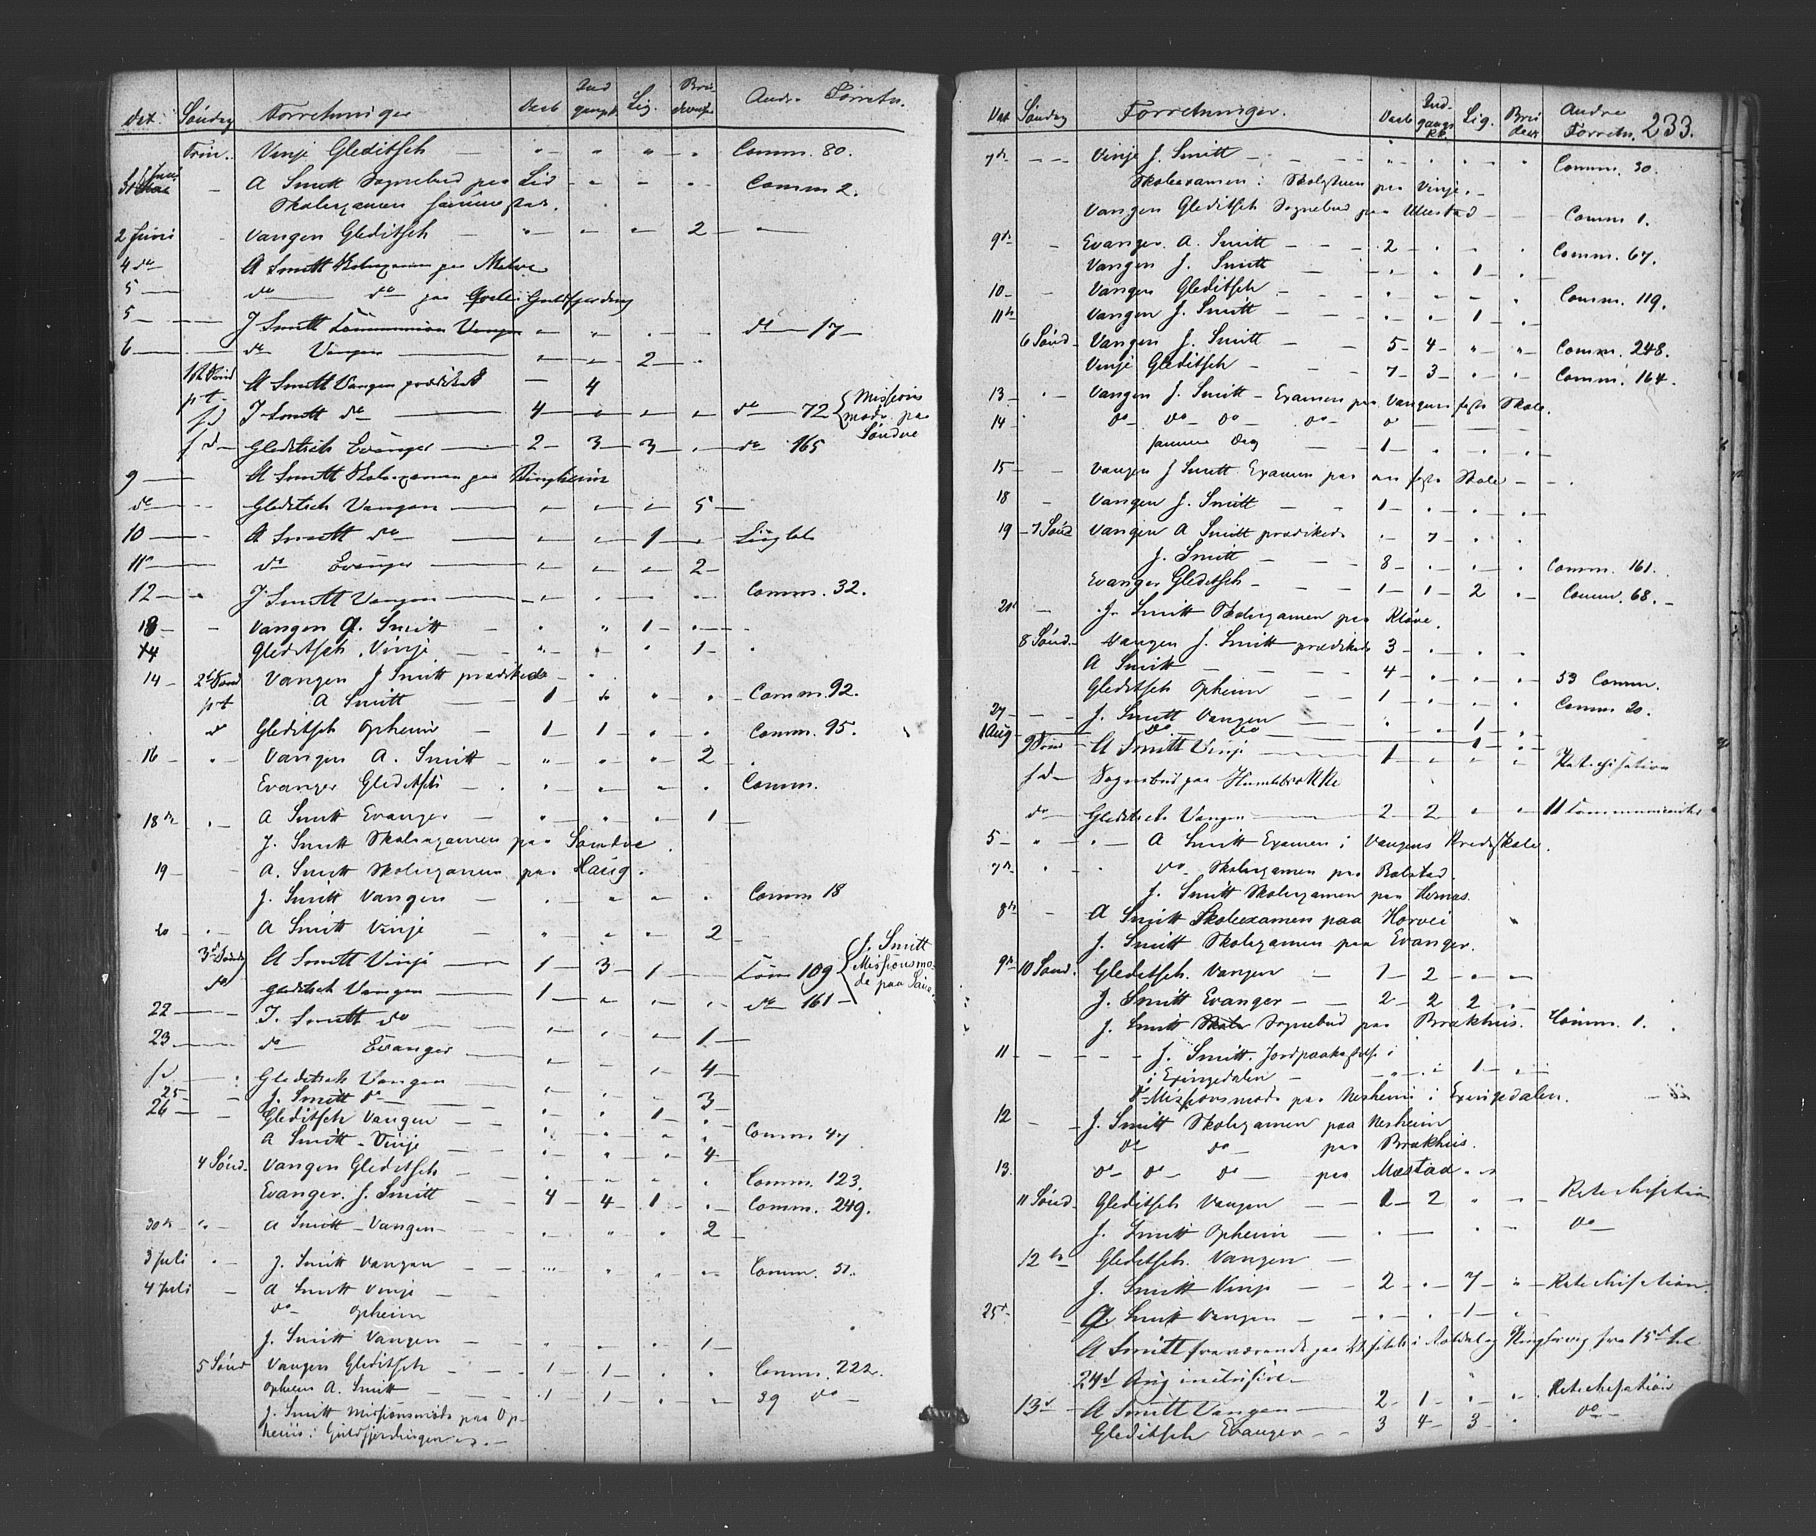 Dat. Søndag Forretninger Daab Ind gangk. Lig. Bru devielse Andre Forretn.
Trin. Vinje Gleditsch - - - - Comm. 80.
31 - A Smitt Sognebud paa Lid - - - Comm 2.
Skoleexamen sammested.
2 Juni Vangen Gleditsch - - - - 2 -
4 do A Smitt Skoleexamen paa
5 — do — do paa Guldfjerding
5 — J Smitt Communion Vangen - - - - do — 17 —
6 — do Vangen — - - 2 -
1ste Sønd A Smitt Vangen prædiket — 4
p t
f d J. Smitt do — 4 - - - do — 72 { Missions møde paa Søndve
f d — Gleditsch Evanger — 2 - 3 - 3 - - do 165
9 — A Smitt Skoleexamen paa Ringheim
do — Gleditsch Vangen — - - - 5 -
10 — A Smitt do — - - 1 -
11 — do Evanger - - - 2 -
12 — J Smitt Vangen — - - - - Comm. 32.
13 - Vangen A. Smitt - - - 1 -
14 Gleditsch, Vinje - - - - 1 -
14 - 2d Sønd Vangen J Smitt prædikede -
p t A Smitt - 1 - - - Comm. 92.
do Gleditsch Opheim - 1 1 - - Comm. 95.
16 - Vangen A. Smitt - - - - 2 -
Evanger Gleditsch - - - - - Comm.
18de - A Smitt Evanger - - - - 1 -
J. Smitt Skoleexamen paa Søndve.
19 - A. Smitt Skoleexamen paa Haug.
J. Smitt Vangen - - - - - Comm 18
20 - A Smitt Vinje - - - - 2 -
3d Søndag A Smitt Vinje — 1 - 3 - 1 - Com 109 { J. Smitt Missionsmø- de paa
do Gleditsch Vangen — 1 - - - - do - 161 -
22 — J. Smitt do - - - - 1 -
23 — do Evanger — - - - 4 -
f d — Gleditsch Vangen — - - - 3 -
25 — J. Smitt do — - - 1 -
26 — Gleditsch Vangen - - - - - Comm. 47
A Smitt - Vinje - - - - 4 -
4 Sønd. Vangen Gleditsch - - - - - Comm. 123.
Evanger. J. Smitt - 4 - 4 - 1 - - Comm. 249.
30te A Smitt - Vangen - - - - 2 -
3 Juli - J. Smitt Vangen - - - - - Comm. 51.
4 Juli - A Smitt Vinje -
do Opheim
J. Smitt Vangen - - - - 1 -
5 Sønd Vangen Gleditsch - 1 1 - - Comm. 222.
Opheim A. Smitt - 1 1 - - 39 do -
J. Smitt Missionsmøde paa Op-
heim i Guldfjerdingen
Dat Søndag Forretninger. Daab Ind- gangs Kk. Lig. Bru deviel Andre Forretn. 233.
7de - - Vinje J. Smitt - - - - - Comm. 30.
Skoleexamen i Skolestuen paa Vinje. -
Vangen Gleditsch Sognebud paa - - Comm 1.
9de - Evanger. A. Smitt - - - 2 - - - Comm. 67.
Vangen J. Smitt - - - 1 -
10 - - Vangen Gleditsch - - - - - Comm. 119.
11te - Vangen J. Smitt - - - 1 -
6 Sønd - Vangen J. Smitt - 5 - 4 - - - Comm. 248.
Vinje Gleditsch - - 7 - 3 - - - Comm. 164.
13 - Vangen J. Smitt - Examen paa Vangens faste Skole.
14 - do do do do
samme Dag - 1 -
15 - - Vangen J Smitt Examen paa faste Skole - -
18 - Vangen J. Smitt - 1 -
19 - 7 Sønd Vangen A Smitt prædikede - 7 -
J. Smitt - 8 - - - Comm. 161.
Evanger Gleditsch - 1 - 1 - 2 - Comm. 68. -
21 - J. Smitt Skoleexamen paa Kløve.
8 Sønd. - Vangen J. Smitt prædikede 3 -
A Smitt - - 4 - - - 53 Comm.
Gleditsch Opheim - 1 - - - Comm 20.
27 - - J. Smitt Vangen - - - 1 -
1 Aug - do do - 1 -
9 Sønd - A Smitt Vinje — 1 - - - Katechisation
f d — Sognebud paa
do - Gleditsch Vangen — 2 - 2 - - 11 Communicanter
5 - - A Smitt Examen i Vangens Kredsskole.
7de - do Skoleexamen paa Bolstad.
J. Smitt Skoleexamen paa Hernæs.
8de - A Smitt Skoleexamen paa Horvei
J. Smitt Skoleexamen paa Evanger.
9de 10 Sønd. Gleditsch. Vangen - 1 - 2 -
J. Smitt Evanger - - 2 - 2 2 -
J. Smitt Sognebud paa Brækhus. Comm. 1.
11 - - - J. Smitt. Jordpaakastelse i
i Exingedalen - - - 1 -
do Missionsmøde paa Nesheim i Exingedalen.
12 - J. Smitt Skoleexamen paa Nesheim
do do paa Brækhus.
13 do do do paa Mæstad
11 Sønd - Gleditsch Vangen - 1 - 2 - - Katechisation
J. Smitt Opheim - - - - do -
12te Gleditsch. Vangen -
J. Smitt Vinje - - 2 - - 7 - - Katechisation.
25de A. Smitt Vangen - - - 1 -
A Smitt fraværende paa i Røldal og fra 15de til
24de Aug
13d - A Smitt Vangen — 2 - 1 - - - Katechisation
Gleditsch Evanger - - 3 4 - 3 - - do -